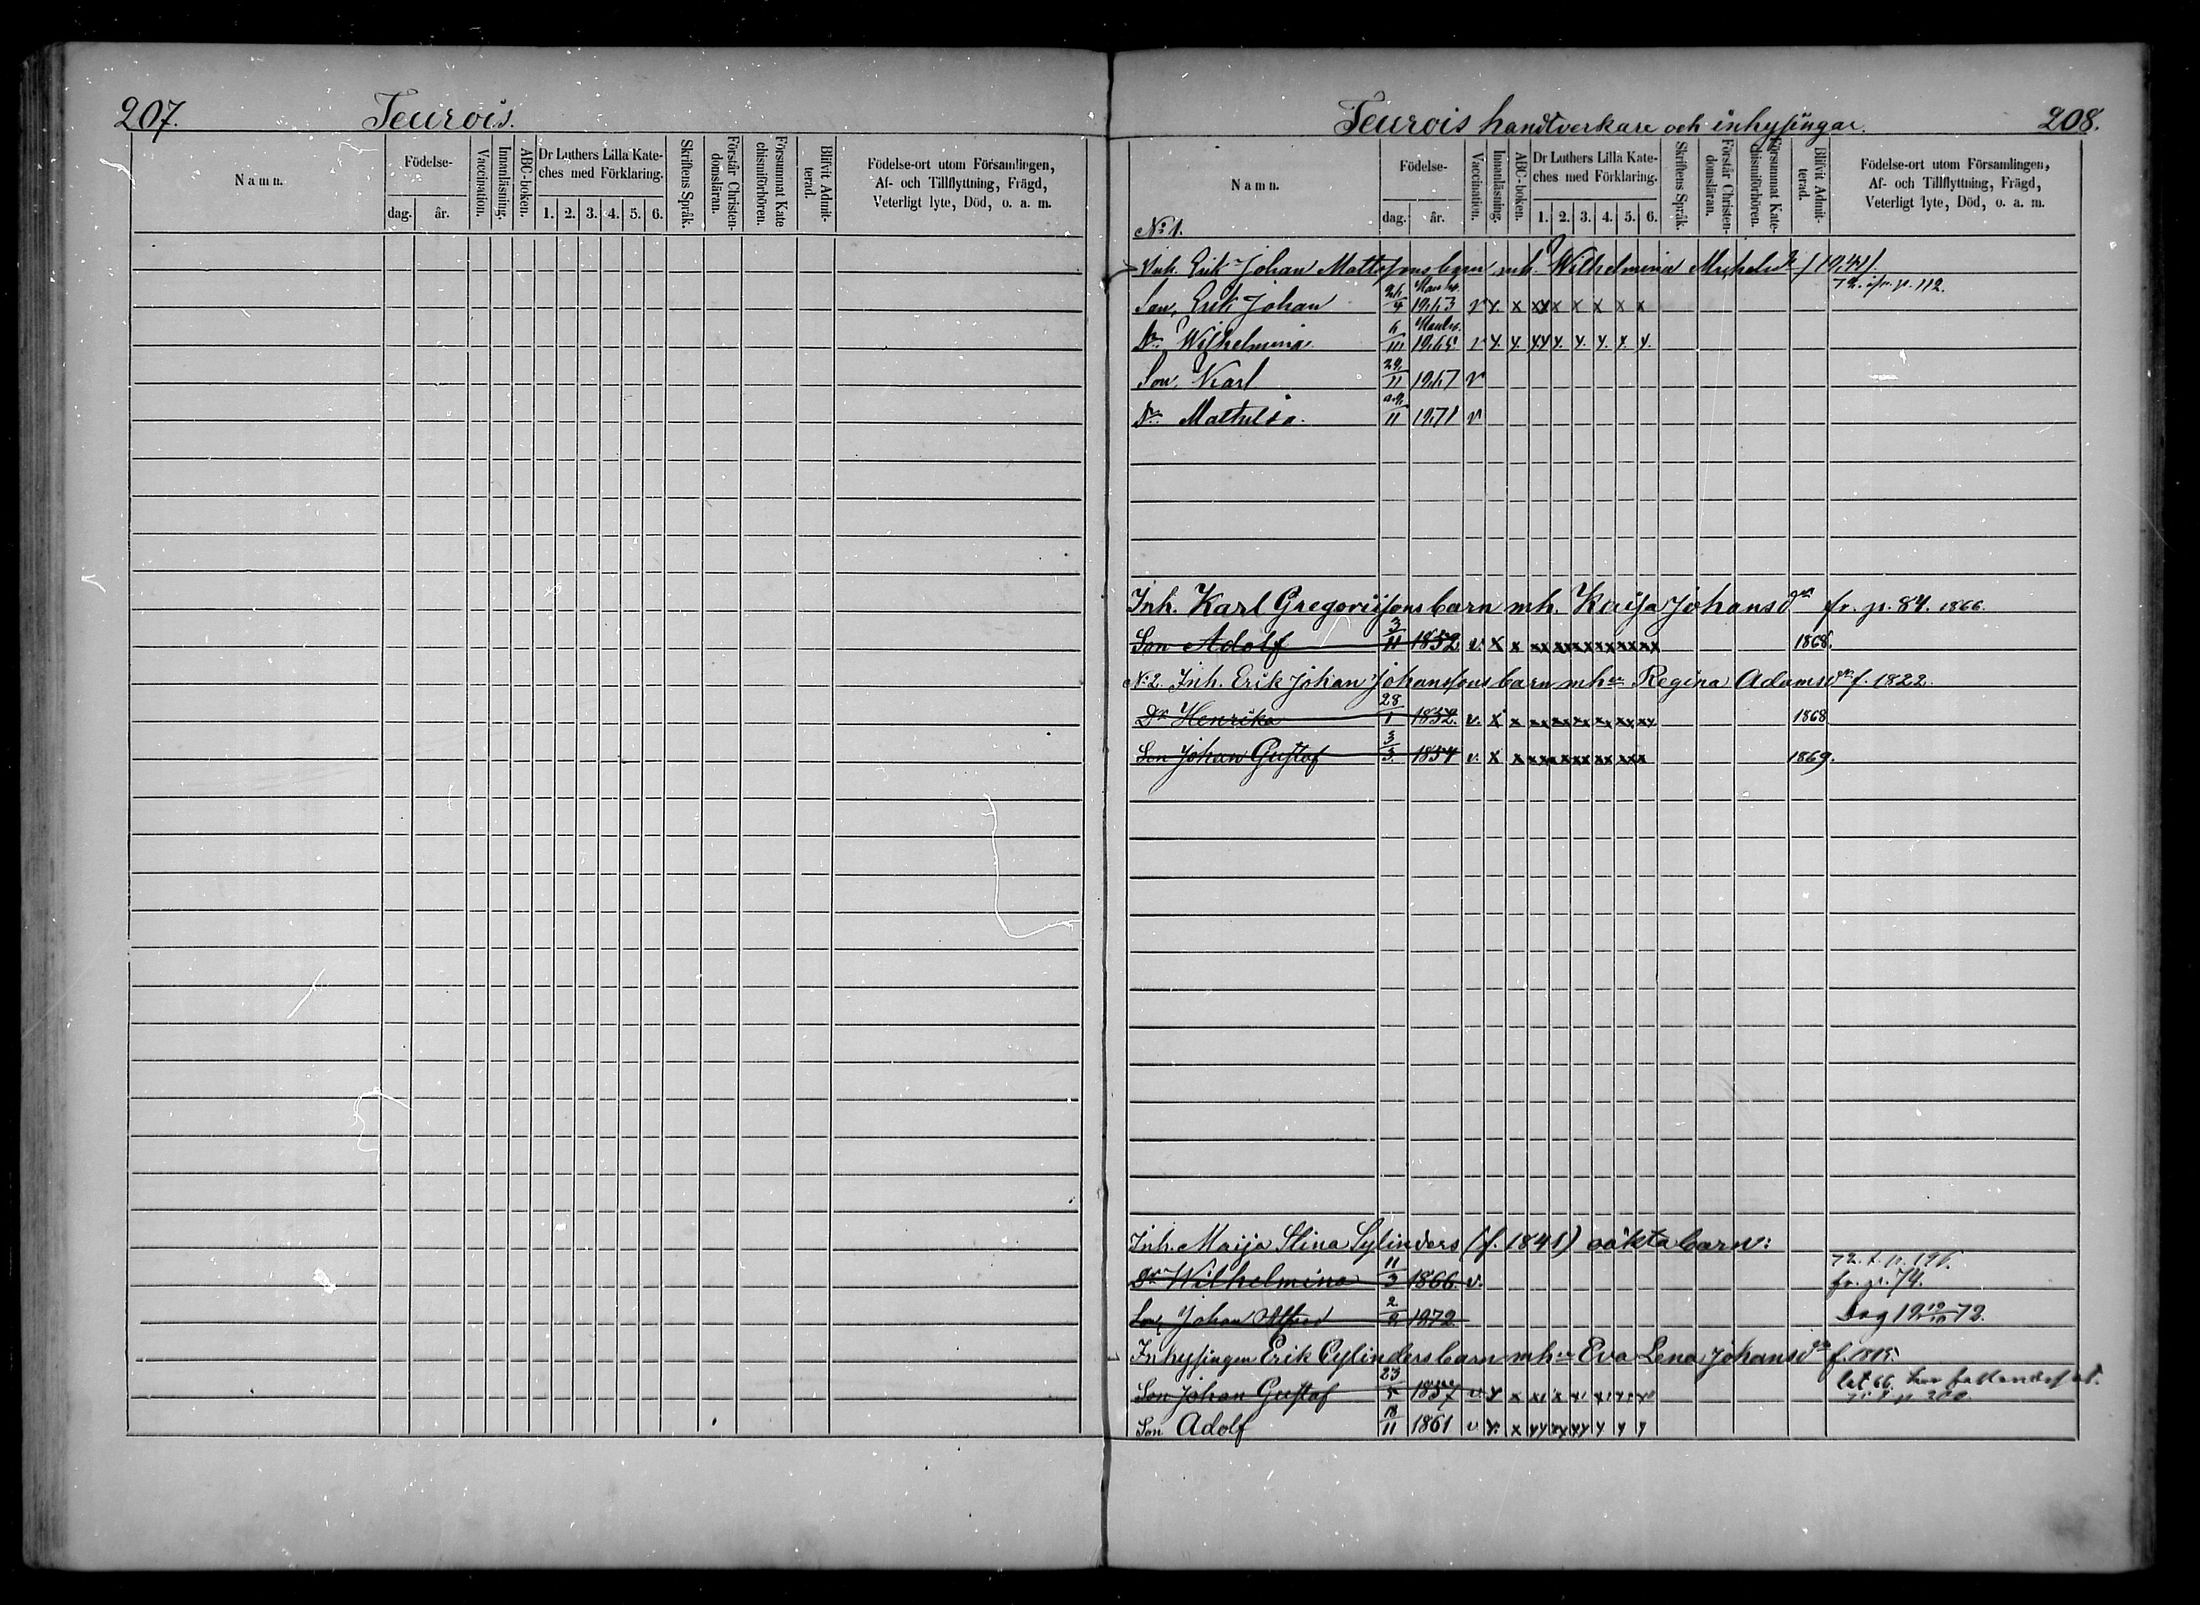 207. Teurois.
Namn.
Födelse-
dag. år.
Vaccination.
Innanläsning.
ABC-boken.
Dr Luthers Lilla Kate-
ches med Förklaring.
1. 2. 3. 4. 5. 6.
Skriftens Språk.
Förstår Christen-
domsläran.
Försummat Kate
chismiförhören.
Blifvit Admit-
terad.
Födelse-ort utom Församlingen,
Af- och Tillflyttning, Frägd,
Veterligt lyte, Död, o. a. m.
Teurois handtverkare och inhysingar. 208.
Namn.
No 1.
Födelse-
dag. år.
Vaccination.
Innanläsning.
ABC-boken.
Dr Luthers Lilla Kate-
ches med Förklaring.
1. 2. 3. 4. 5. 6.
Skriftens Språk.
Förstår Christen-
domsläran.
Försummat Kate-
chismiförhören.
Blifvit Admit-
terad.
Födelse-ort utom Församlingen,
Af- och Tillflyttning, Frägd,
Veterligt lyte, Död, o. a. m.
Inh. Erik Johan Mattssons barn mh. Wilhelmina
72. ifr. p. 112.
Son, Erik Johan 1863 v x x xx x x x x x
Dr. Wilhelmina 1865 v x x xx x x x x x
Son, Karl 29/11 1867 v
Dr. Mathilda. 1871 v
Inh. Karl Gregoriissons barn mh. Kaisa Johansdr fr. p. 84. 1866.
Son Adolf 3/11 1852 v. x x xx xx xx xx xx xx 1868.
No 2. Inh. Erik Johan Johanssons barn mh Regina Adamsdr f. 1822.
Dr Henrika 28/1 1852. v. x x xx xx xx xx xx xx 1868
Son Johan Gustaf 3/3 1854 v. x x xx xx xx xx xx xx 1869.
Inh. Maija Stina Sylinders (f. 1841) oäkta barn:
72. t. p. 196.
Dr Wilhelmina 11/3 1866. v. fr. p. 74.
Son, Johan Alfred 2/2 1872 Dog 72.
Inhysingen Erik Cylinders barn mh Eva Lena Johansdr f. 1815.
Son Johan Gustaf 23/5 1857 v. x x
Son Adolf 18/11 1861 v x x xx xx xx x x x